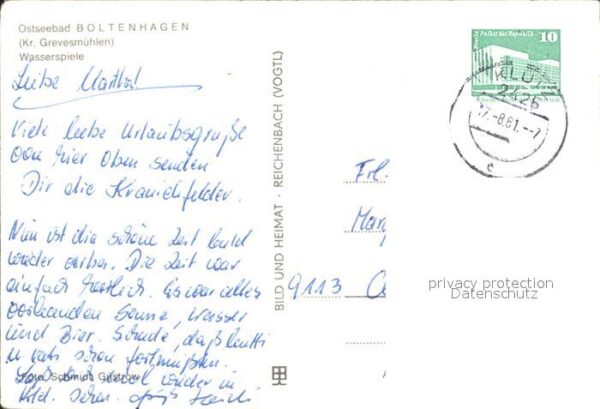 Ostseebad BOLTENHAGEN
(Kr. Grevesmühlen)
Wasserspiele
Liebe
Viele liebe Urlaubsgrüße
von hier oben senden
Dir die Kranichfelder.
Nun ist die schöne Zeit bald
wieder vorbei. Die Zeit war
einfach herrlich. Es war alles
vorhanden Sonne, Wasser
und Bier. Schade, daß
schon
Foto Schmidt, Güstrow
wieder in
BILD UND HEIMAT · REICHENBACH (VOGTL)
Berlin Palast der Republik
10
KLÜTZ
2426
17.-8.81.--7
c
Frl.
Mar
9113
privacy protection
Datenschutz